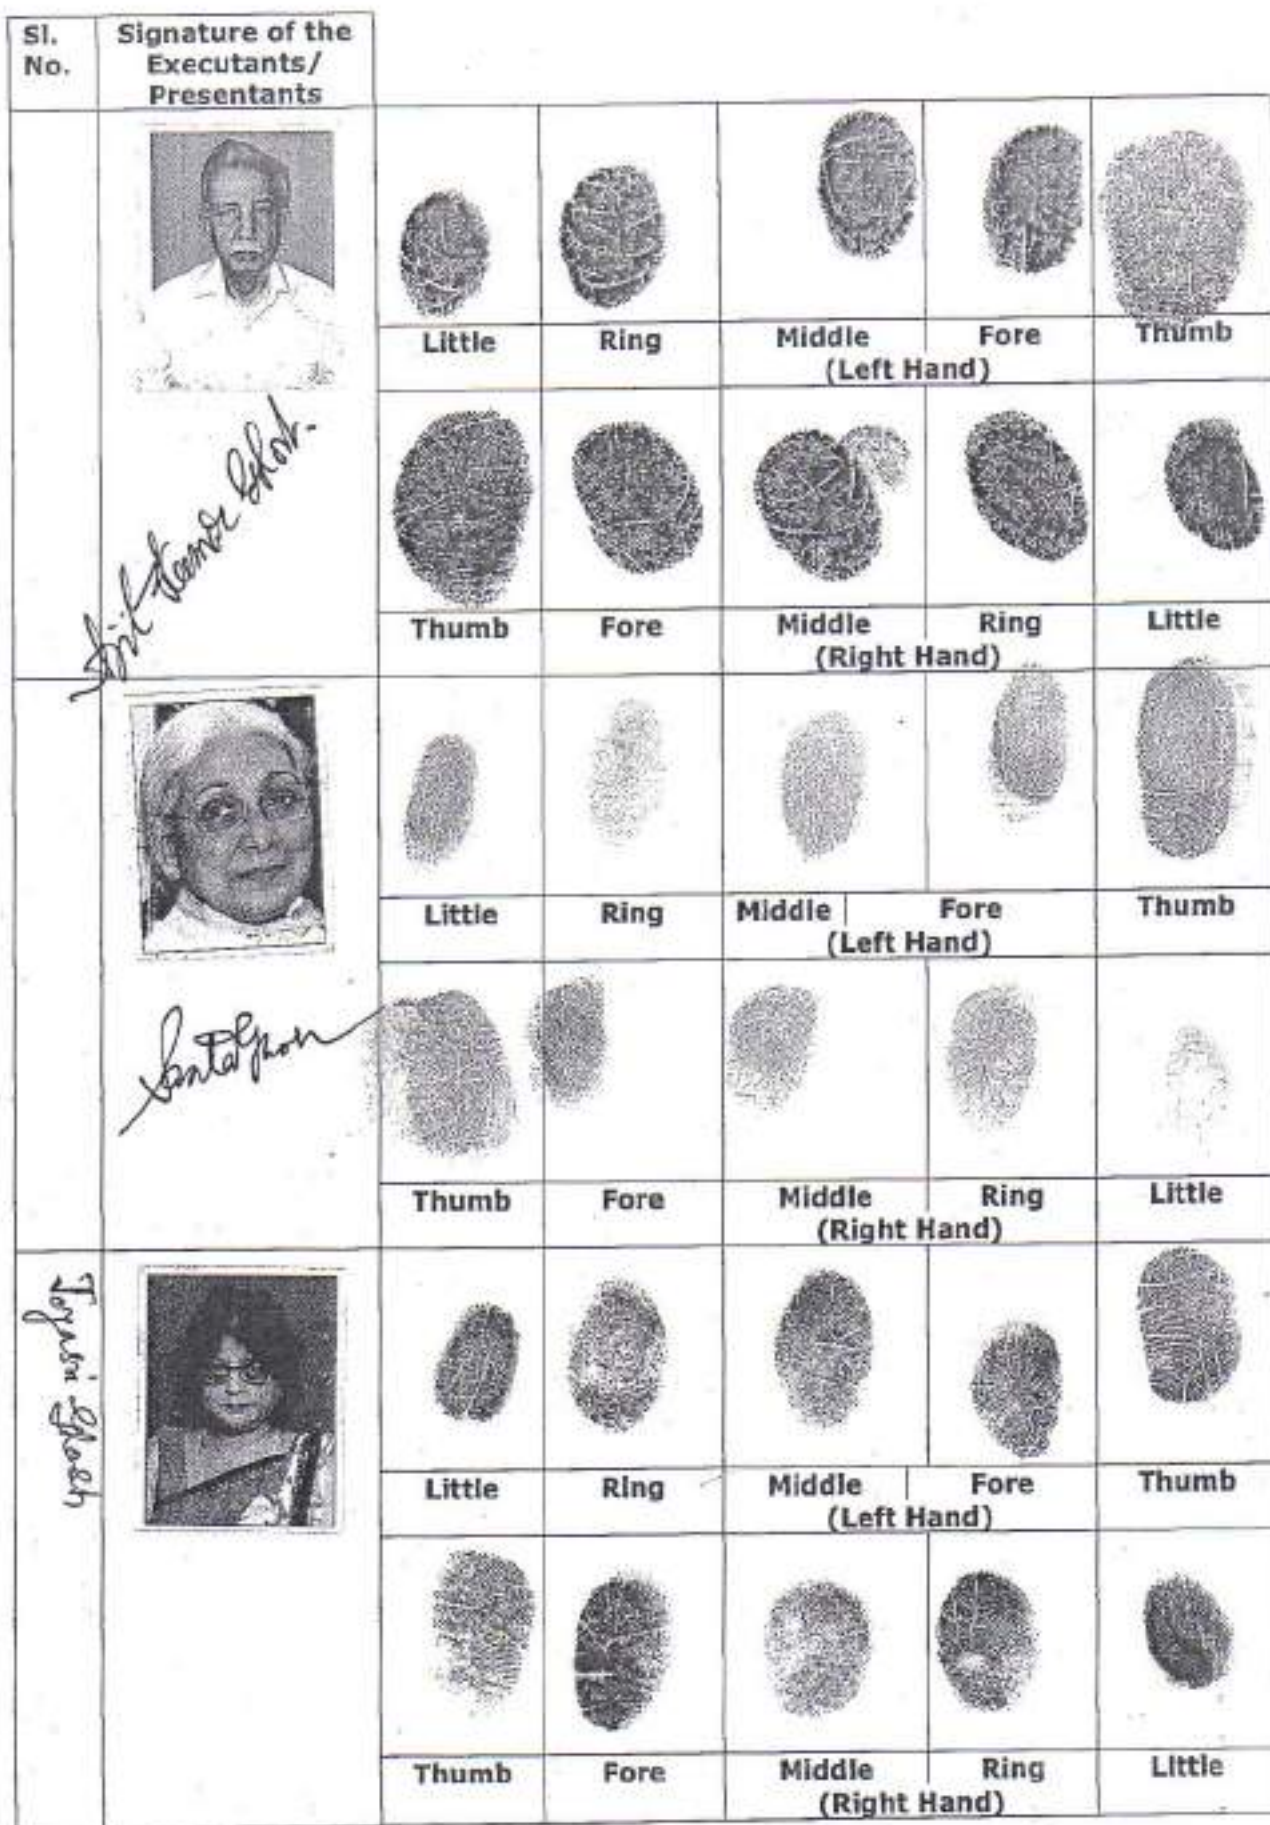 Sl. No.
Signature of the Executants/ Presentants
Little Ring Middle Fore Thumb
(Left Hand)
Ghosh.
Thumb Fore Middle Ring Little
(Right Hand)
Little Ring Middle Fore Thumb
(Left Hand)
Santa Ghosh
Thumb Fore Middle Ring Little
(Right Hand)
Ghosh
Little Ring Middle Fore Thumb
(Left Hand)
Thumb Fore Middle Ring Little
(Right Hand)